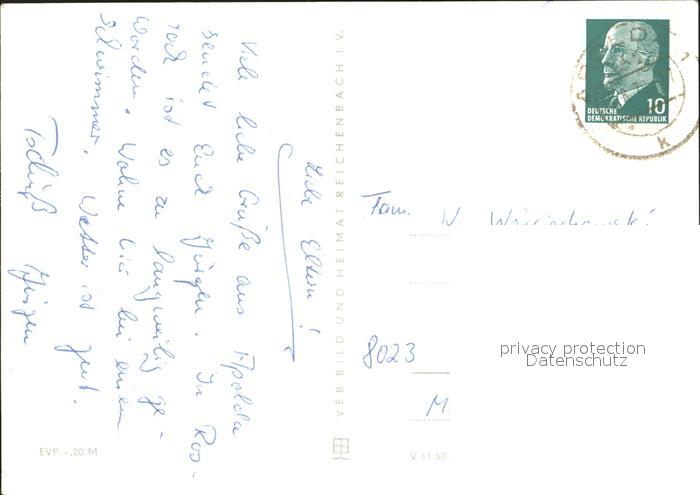 Liebe Eltern!
Viele liebe Grüße aus Apolda
sendet Euch Jürgen. In Ros-
tock ist es zu langweilig ge-
worden. Wohne hier bei einem
Schwimmer. Wetter ist gut.
Tschüß Jürgen
EVP -,20 M
VEB BILD UND HEIMAT REICHENBACH I. V.
V 11 50
DEUTSCHE
DEMOKRATISCHE REPUBLIK
10
k
Fam. W.
8023
M
privacy protection
Datenschutz